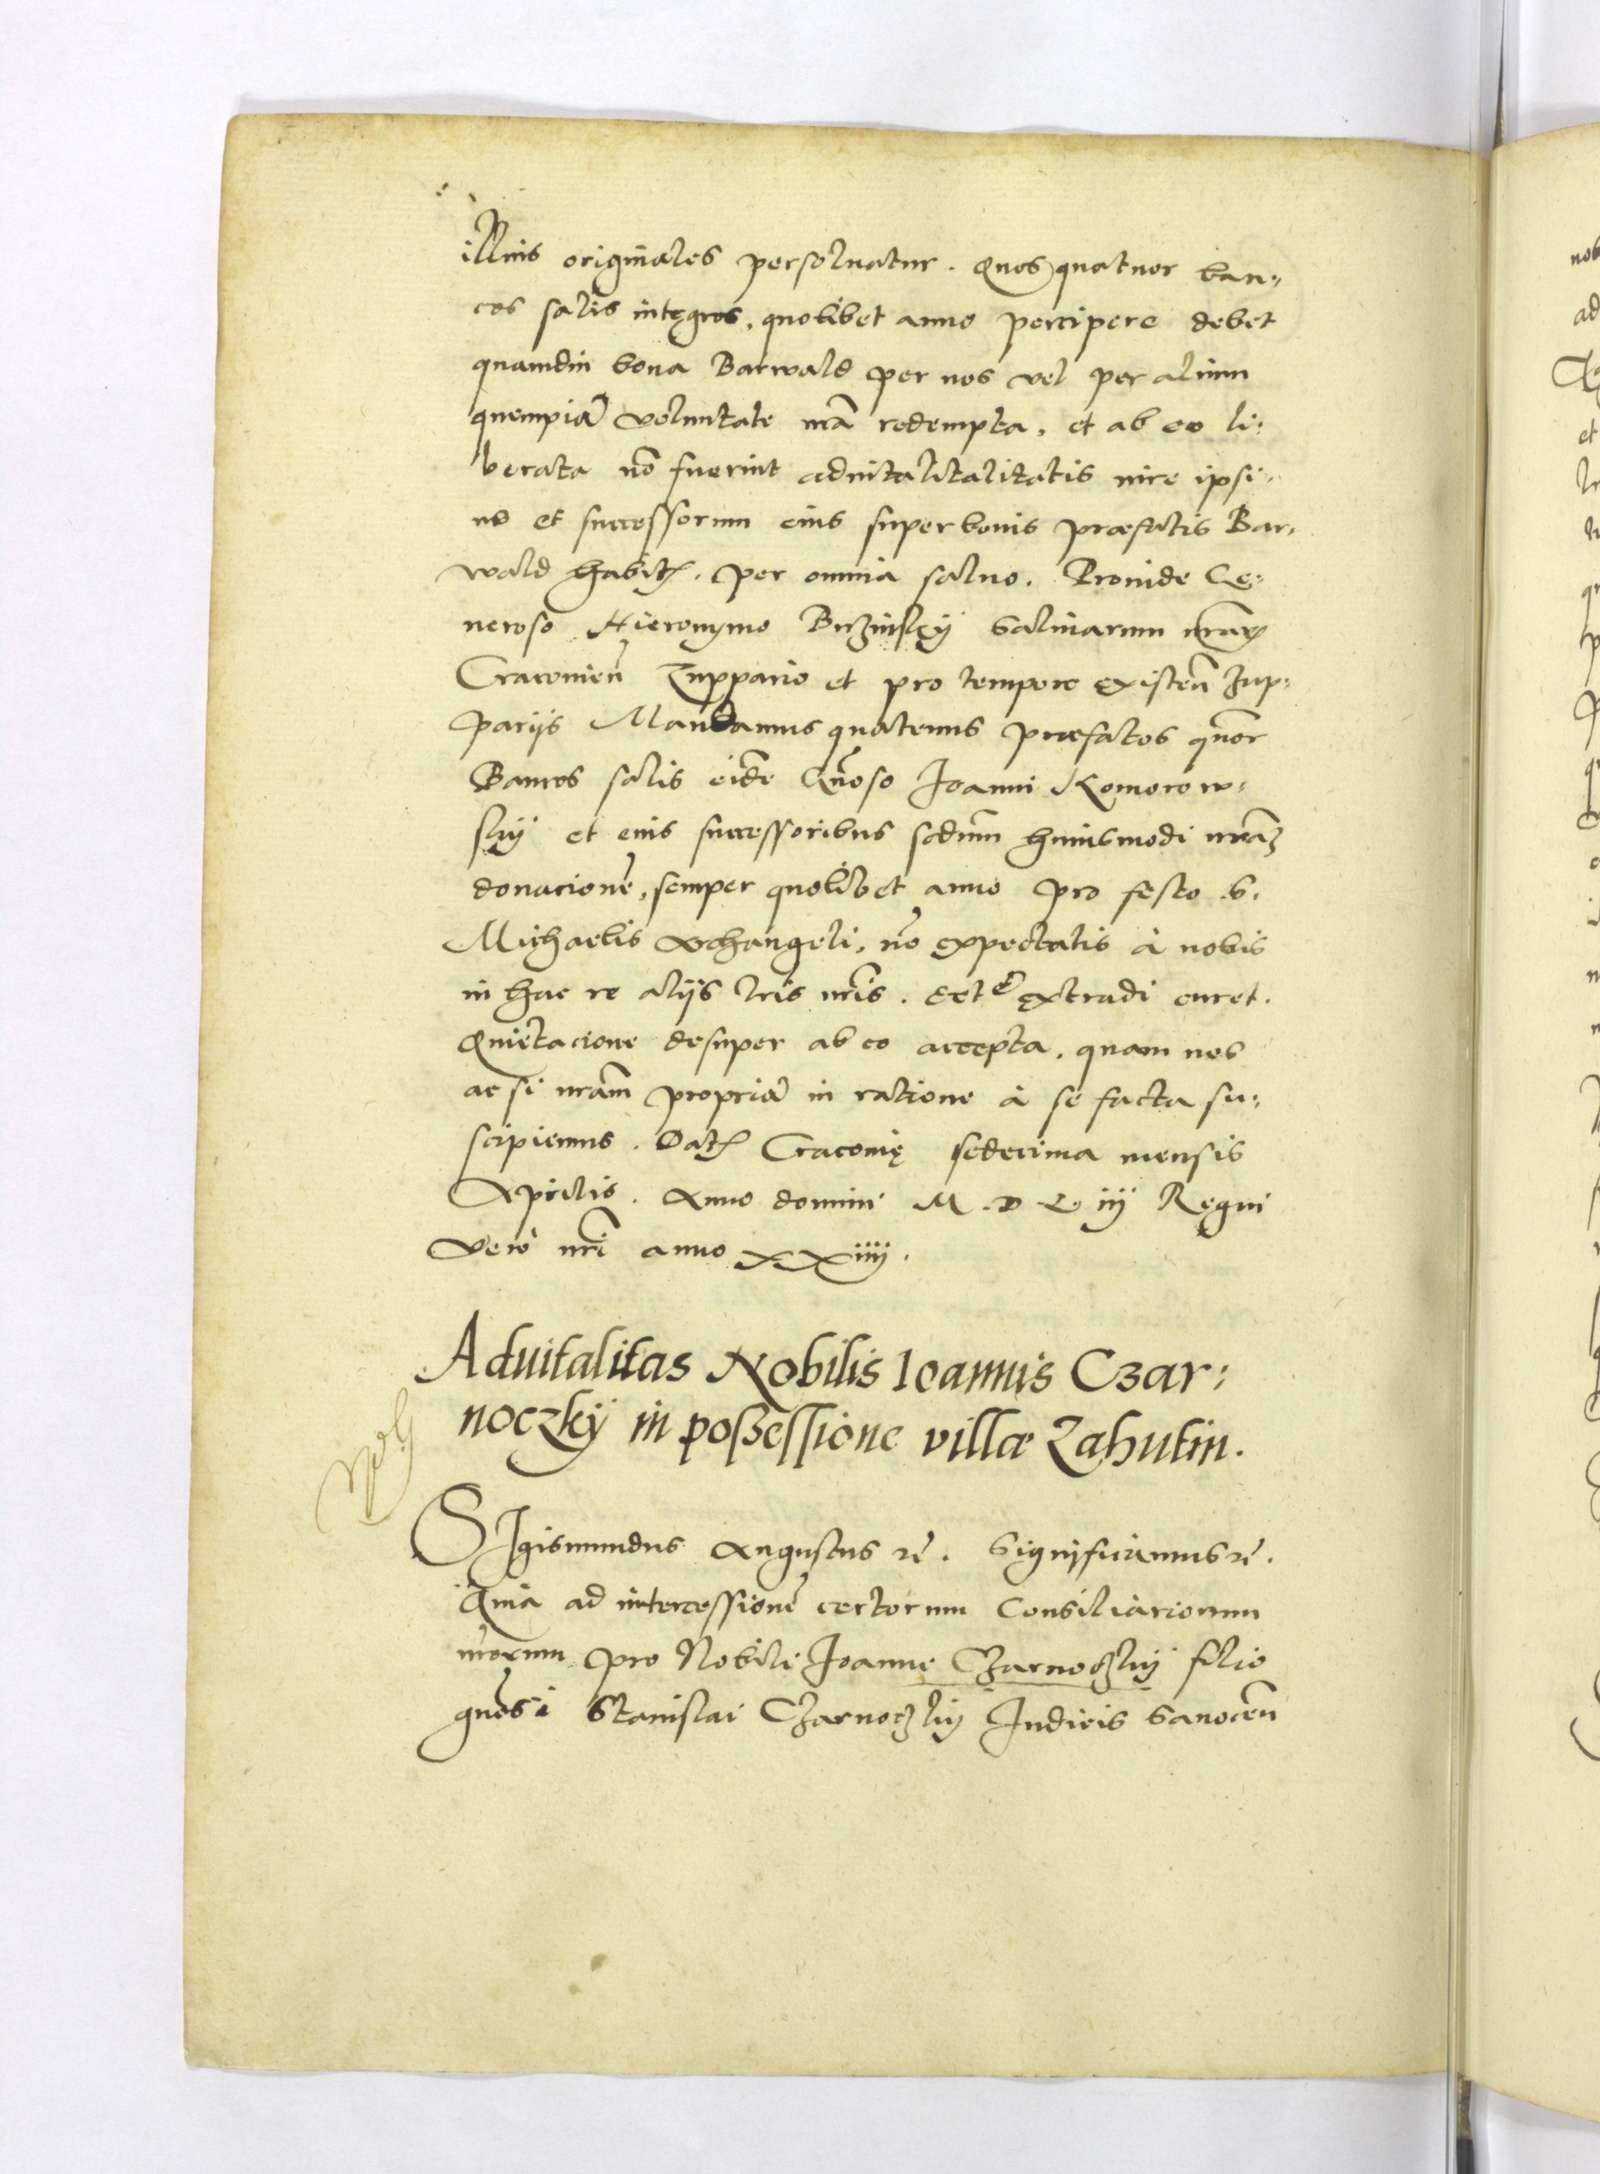 illius originales persoluatur. Quos quatuor ban-
cos salis integros, quolibet anno percipere debet
quamdiu bona Barwald per nos vel per alium
quempiã voluntate nrã redempta, et ab eo li-
berata nõ fuerint aduitalitalitatis iure ipsi-
us et successorum eius super bonis præfatis Bar-
wald habit. per omnia saluo. Proinde Ge-
neroso Hieronymo Buzinskÿ Salinarum nrãr
Cracouien̄ Zuppario et pro tempore existen̄ Zup-
parijs Mandamus quatenus præfatos quõr
Bancos salis eidẽ Gñoso Joanni Komorow-
skÿ et eius successoribus scdum̄ huiusmodi nrãm
donacionẽ, semper quolibet anno pro festo S.
Michaelis Archangeli, nõ expectatis à nobis
in hac re alijs lris nris. extradi curet.
Quietacione desuper ab eo accepta, quam nos
ac si nram̄ propriã in ratione à se facta su-
scipiemus. Dat Cracouię sedecima mensis
Aprilis. Anno domini M. D L iij Regni
vero nrĩ anno XXiiij.
Aduitalitas Nobilis Ioannis Czar:
noczkÿ in possessione villæ Zahutin.
SIgismundus Augustus rẽ. Significamus rẽ.
Quia ad intercessionẽ certorum Consiliariorum
nrorum pro Nobile Joanne Czarnoczkÿ filio
gnosi Stanislai Czarnoczkÿ Iudicis Sanocen̄